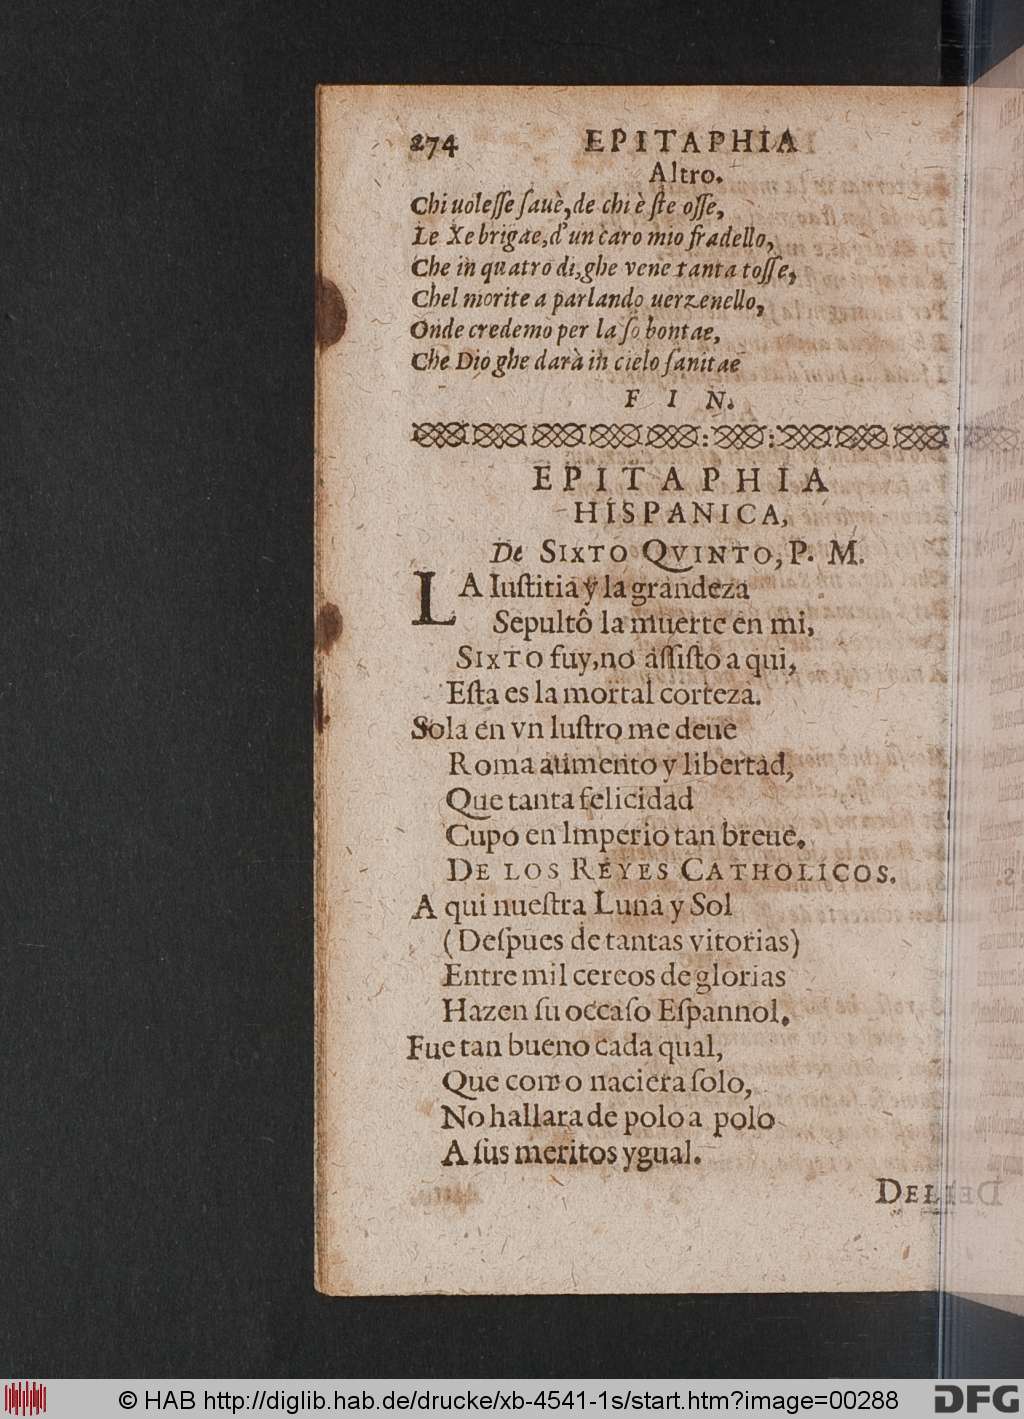 274 EPITAPHIA
Altro.
Chi uoleſſe ſauè, de chi è ſte oſſe,
Le Xe brigae, d'un caro mio fradello,
Che in quatro di, ghe vene tanta toſſe,
Chel morite a parlando uerzenello,
Onde credemo per la ſo bontae,
Che Dio ghe darà in cielo ſanitae
FIN.
EPITAPHIA
HISPANICA,
De SIXTO QVINTO, P. M.
LA Iuſtitia y la grandeza
Sepultô la muerte en mi,
SIXTO fuy, no aſſiſto a qui,
Eſta es la mortal corteza.
Sola en vn luſtro me deue
Roma aumento y libertad,
Que tanta felicidad
Cupo en Imperio tan breue.
DE LOS REYES CATHOLICOS.
A qui nueſtra Luna y Sol
(Deſpues de tantas vitorias)
Entre mil cercos de glorias
Hazen ſu occaſo Eſpannol.
Fue tan bueno cada qual,
Que como naciera ſolo,
No hallara de polo a polo
A ſus meritos ygual.
DEL
© HAB http://diglib.hab.de/drucke/xb-4541-1s/start.htm?image=00288
DFG